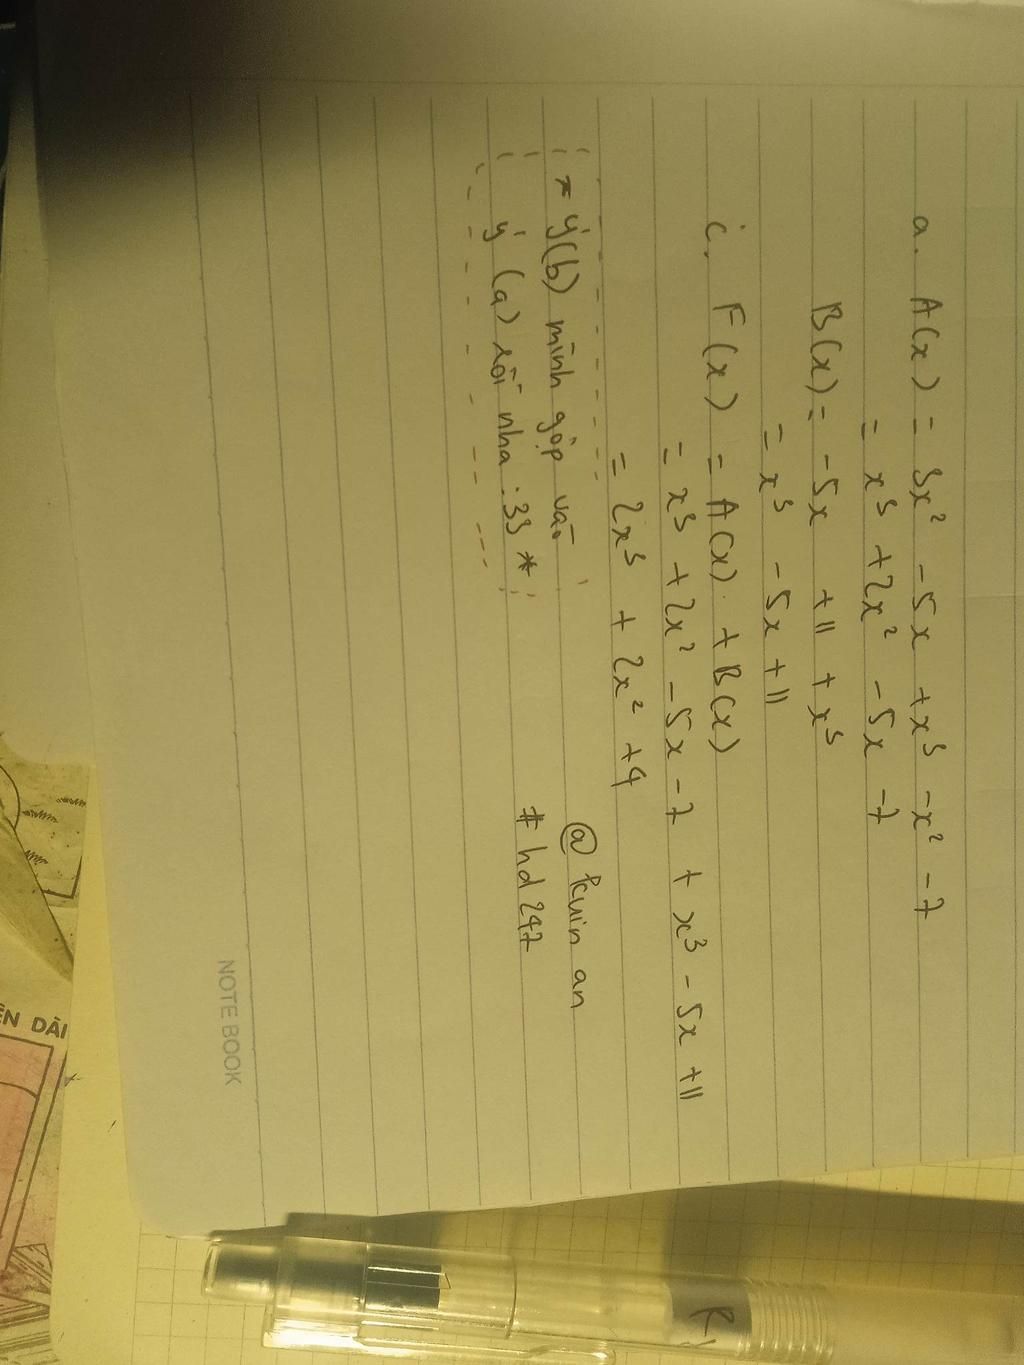 a. A(x) = 3x² - 5x + x³ - x² - 7
= x³ + 2x² - 5x - 7
B(x) = -5x + 11 + x³
= x³ - 5x + 11
c. F(x) = A(x) + B(x)
= x³ + 2x² - 5x - 7 + x³ - 5x + 11
= 2x³ + 2x² + 4
* ý (b) mình gộp vào
ý (a) rồi nha :33 *
@ kuin an
# hd247
NOTE BOOK
ỆN DÀI